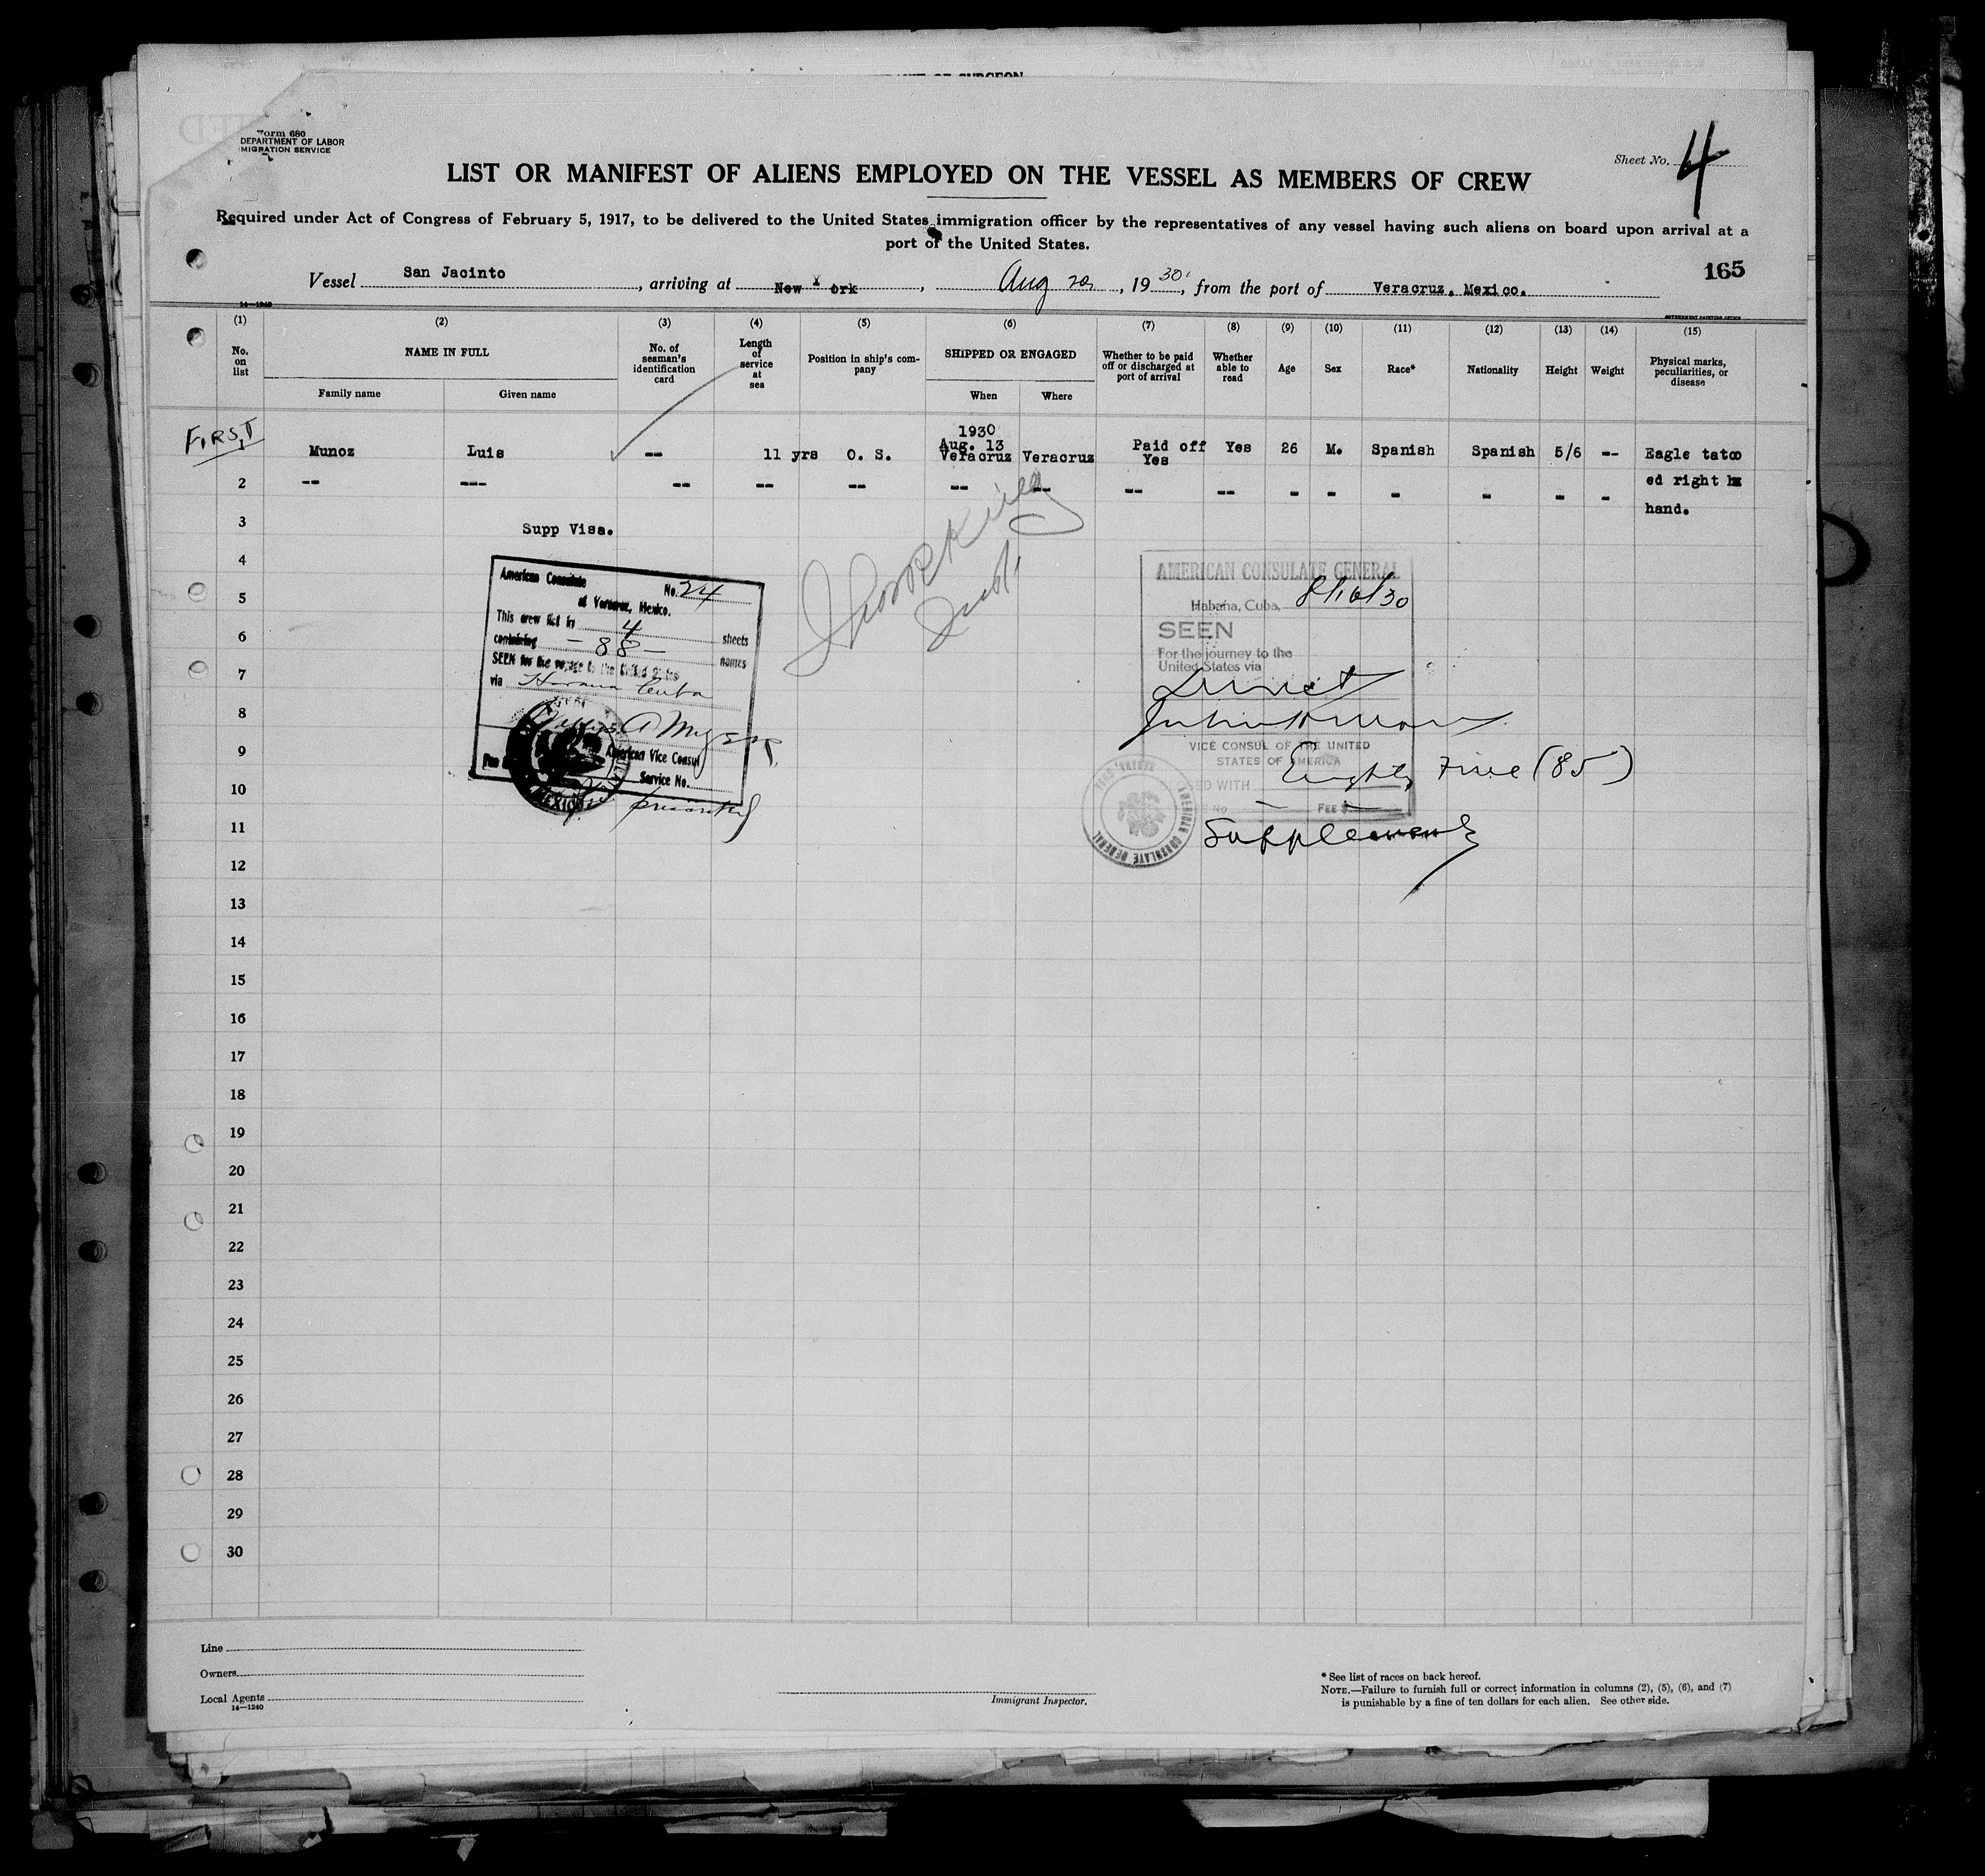 Form 680
DEPARTMENT OF LABOR
MIGRATION SERVICE
Sheet No. 4
LIST OR MANIFEST OF ALIENS EMPLOYED ON THE VESSEL AS MEMBERS OF CREW
Required under Act of Congress of February 5, 1917, to be delivered to the United States immigration officer by the representatives of any vessel having such aliens on board upon arrival at a
port of the United States.
165
Vessel San Jacinto, arriving at New York, Aug 20, 1930, from the port of Veracruz, Mexico.
14—1240
GOVERNMENT PRINTING OFFICE
(1) (2) (3) (4) (5) (6) (7) (8) (9) (10) (11) (12) (13) (14) (15)
No. on list
NAME IN FULL
Family name
Given name
No. of seaman's identification card
Length of service at sea
Position in ship's company
SHIPPED OR ENGAGED
When
Where
Whether to be paid off or discharged at port of arrival
Whether able to read
Age
Sex
Race*
Nationality
Height
Weight
Physical marks, peculiarities, or disease
FIRST
1930
1 Munoz Luis -- 11 yrs O. S. Aug. 13 Veracruz Veracruz Paid off Yes Yes 26 M. Spanish Spanish 5/6 -- Eagle tatoo
2 -- --- -- -- -- -- -- -- -- - - - - - - ed right
hand.
3
Supp Visa.
4
5
6
7
8
9
10
11
12
13
14
15
16
17
18
19
20
21
22
23
24
25
26
27
28
29
30
American Consulate No. 24
at Veracruz, Mexico.
This crew list in 4 sheets
containing -88- names
SEEN for the voyage to the United States
via Havana Cuba
American Vice Consul
Service No.
MEXICO
AMERICAN CONSULATE GENERAL
Habana, Cuba, 8/16/30
SEEN
For the journey to the
United States via
Direct
VICE CONSUL OF THE UNITED
STATES OF AMERICA
ED WITH Eighty Five (85)
No. — FEE $ —
AMERICAN CONSULATE GENERAL
Supplement
Line
Owners
Local Agents
14—1240
Immigrant Inspector.
* See list of races on back hereof.
NOTE.—Failure to furnish full or correct information in columns (2), (5), (6), and (7)
is punishable by a fine of ten dollars for each alien. See other side.